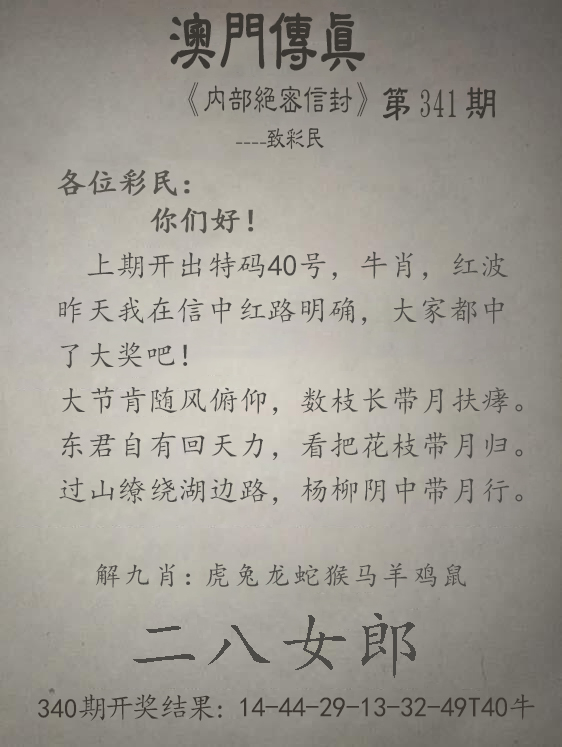 澳門傳眞
《内部絕密信封》第341期
----致彩民
各位彩民：
你们好！
上期开出特码40号，牛肖，红波
昨天我在信中红路明确，大家都中
了大奖吧！
大节肯随风俯仰，数枝长带月扶疼。
东君自有回天力，看把花枝带月归。
过山缭绕湖边路，杨柳阴中带月行。
解九肖：虎兔龙蛇猴马羊鸡鼠
二八女郎
340期开奖结果：14-44-29-13-32-49T40牛